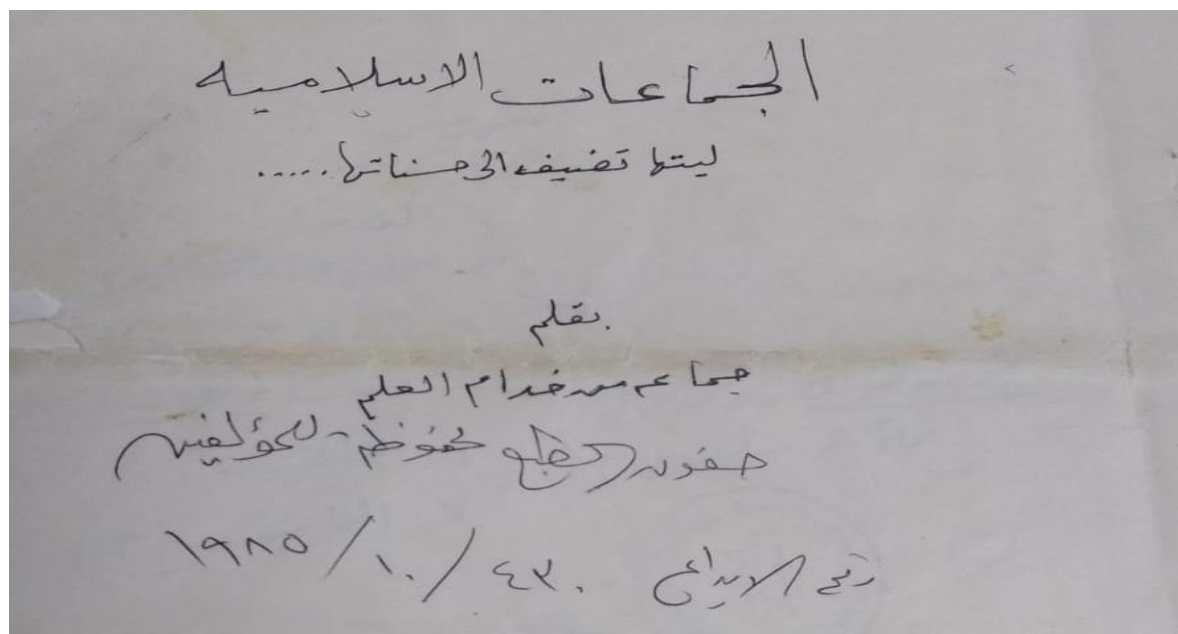 الجماعات الاسلاميه
ليتها تضيف الى حسناتها.....
بقلم
جماعه من خدام العلم
حقوق الطبع محفوظه للمؤلفين
رقم الايداع ٤٣٠ / ١٠ / ١٩٨٥